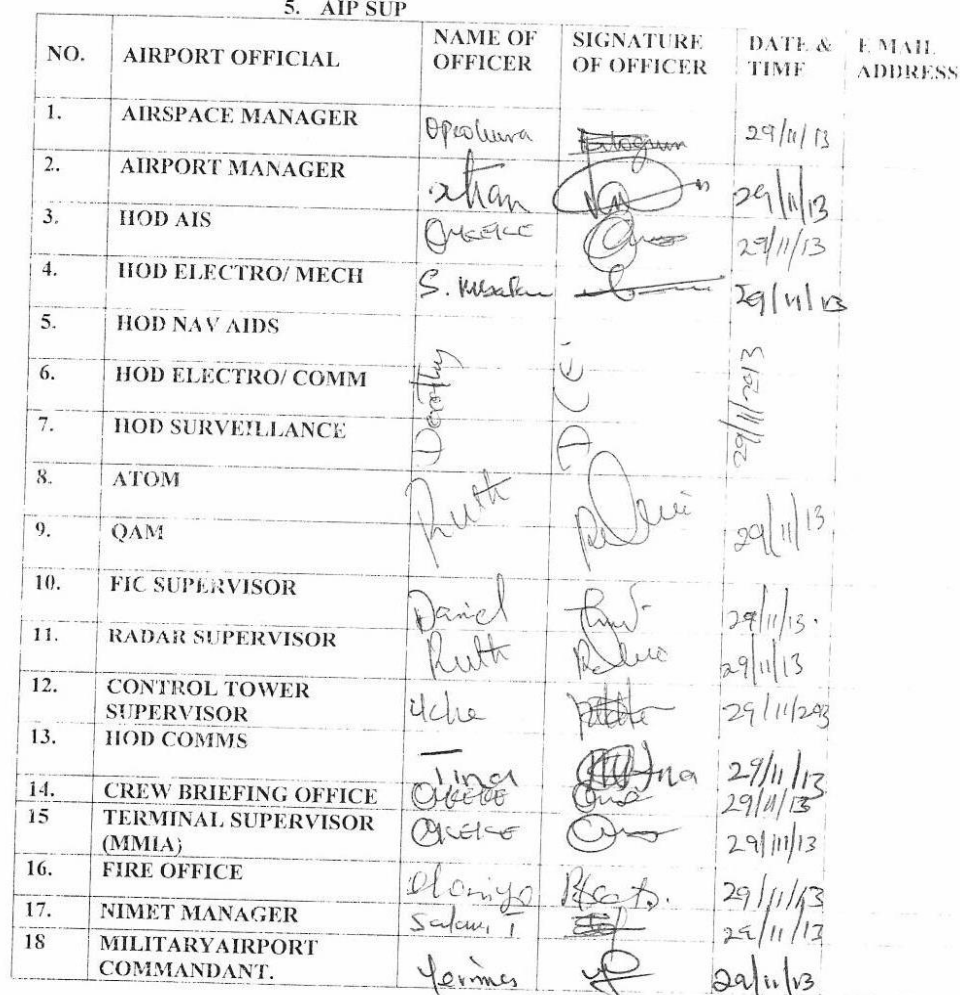 5. AIP SUP
NO. AIRPORT OFFICIAL NAME OF OFFICER SIGNATURE OF OFFICER DATE & TIME E MAIL ADDRESS
1. AIRSPACE MANAGER 29/11/13
2. AIRPORT MANAGER 29/11/13
3. HOD AIS OKEKE 29/11/13
4. HOD ELECTRO/ MECH S. 29/11/13
5. HOD NAV AIDS
6. HOD ELECTRO/ COMM Dorothy 29/11/2013
7. HOD SURVEILLANCE
8. ATOM Ruth 29/11/13
9. QAM
10. FIC SUPERVISOR Daniel 29/11/13.
11. RADAR SUPERVISOR Ruth 29/11/13
12. CONTROL TOWER SUPERVISOR Uche 29/11/2013
13. HOD COMMS Tina 29/11/13
14. CREW BRIEFING OFFICE OKEKE 29/11/13
15 TERMINAL SUPERVISOR (MMIA) OKEKE 29/11/13
16. FIRE OFFICE 29/11/13
17. NIMET MANAGER Salami I 29/11/13
18 MILITARYAIRPORT COMMANDANT. Yerima 29/11/13